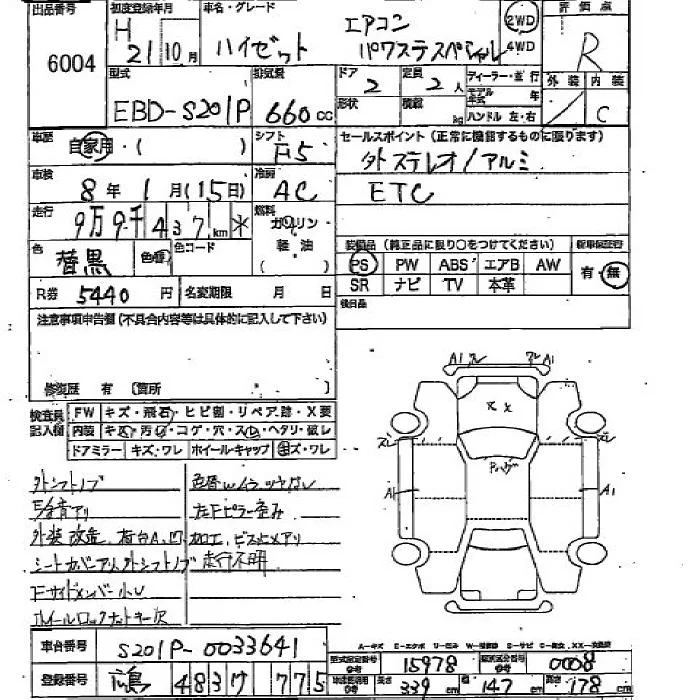 出品番号
6004
初度登録年月
H 21 10月
車名・グレード
ハイゼット
エアコン
パワステスペシャル
2WD
4WD
評価点
R
外装 内装
C
型式
EBD-S201P
排気量
660cc
ドア
2
定員
2人
形状
積載
kg
ディーラー・並行
モデル年式 年
ハンドル 左・右
車歴
自家用・( )
シフト
F5
セールスポイント (正常に機能するものに限ります)
外ステレオ/アルミ
ETC
車検
8年 1月(15日)
冷房
AC
走行
9万9千437km *
燃料
ガソリン
軽油
( )
色
替黒
色替
色コード
装備品 (純正品に限り○をつけてください)
新車保証書
PS PW ABS エアB AW
SR ナビ TV 本革
有・無
後日品
R券 5440円
名変期限 月 日
注意事項申告欄 (不具合内容等は具体的に記入して下さい)
修復歴 有 〔箇所
検査員記入欄
FW キズ・飛石・ヒビ割・リペア跡・X要
内装 キズ・汚れ・コゲ・穴・スレ・ヘタリ・破レ
ドアミラー キズ・ワレ ホイール・キャップ キズ・ワレ
外シフトノブ
下錆有り
外装改造、荷台A、凹、加工、ビス止メアリ
シートカバー
走行不明
左Fピラー歪み
Fサイドメンバー小U
ホイールロックナットキー欠
A1
A1
A1
A1
車台番号
S201P-0033641
登録番号
4837 775
A-キズ E-エクボ U-凹み W-補修跡 S-サビ C-腐食
型式指定番号 参考
15978
類別区分番号 参考
0008
車体寸法 参考
長さ 339cm
幅 147cm
高さ 178cm